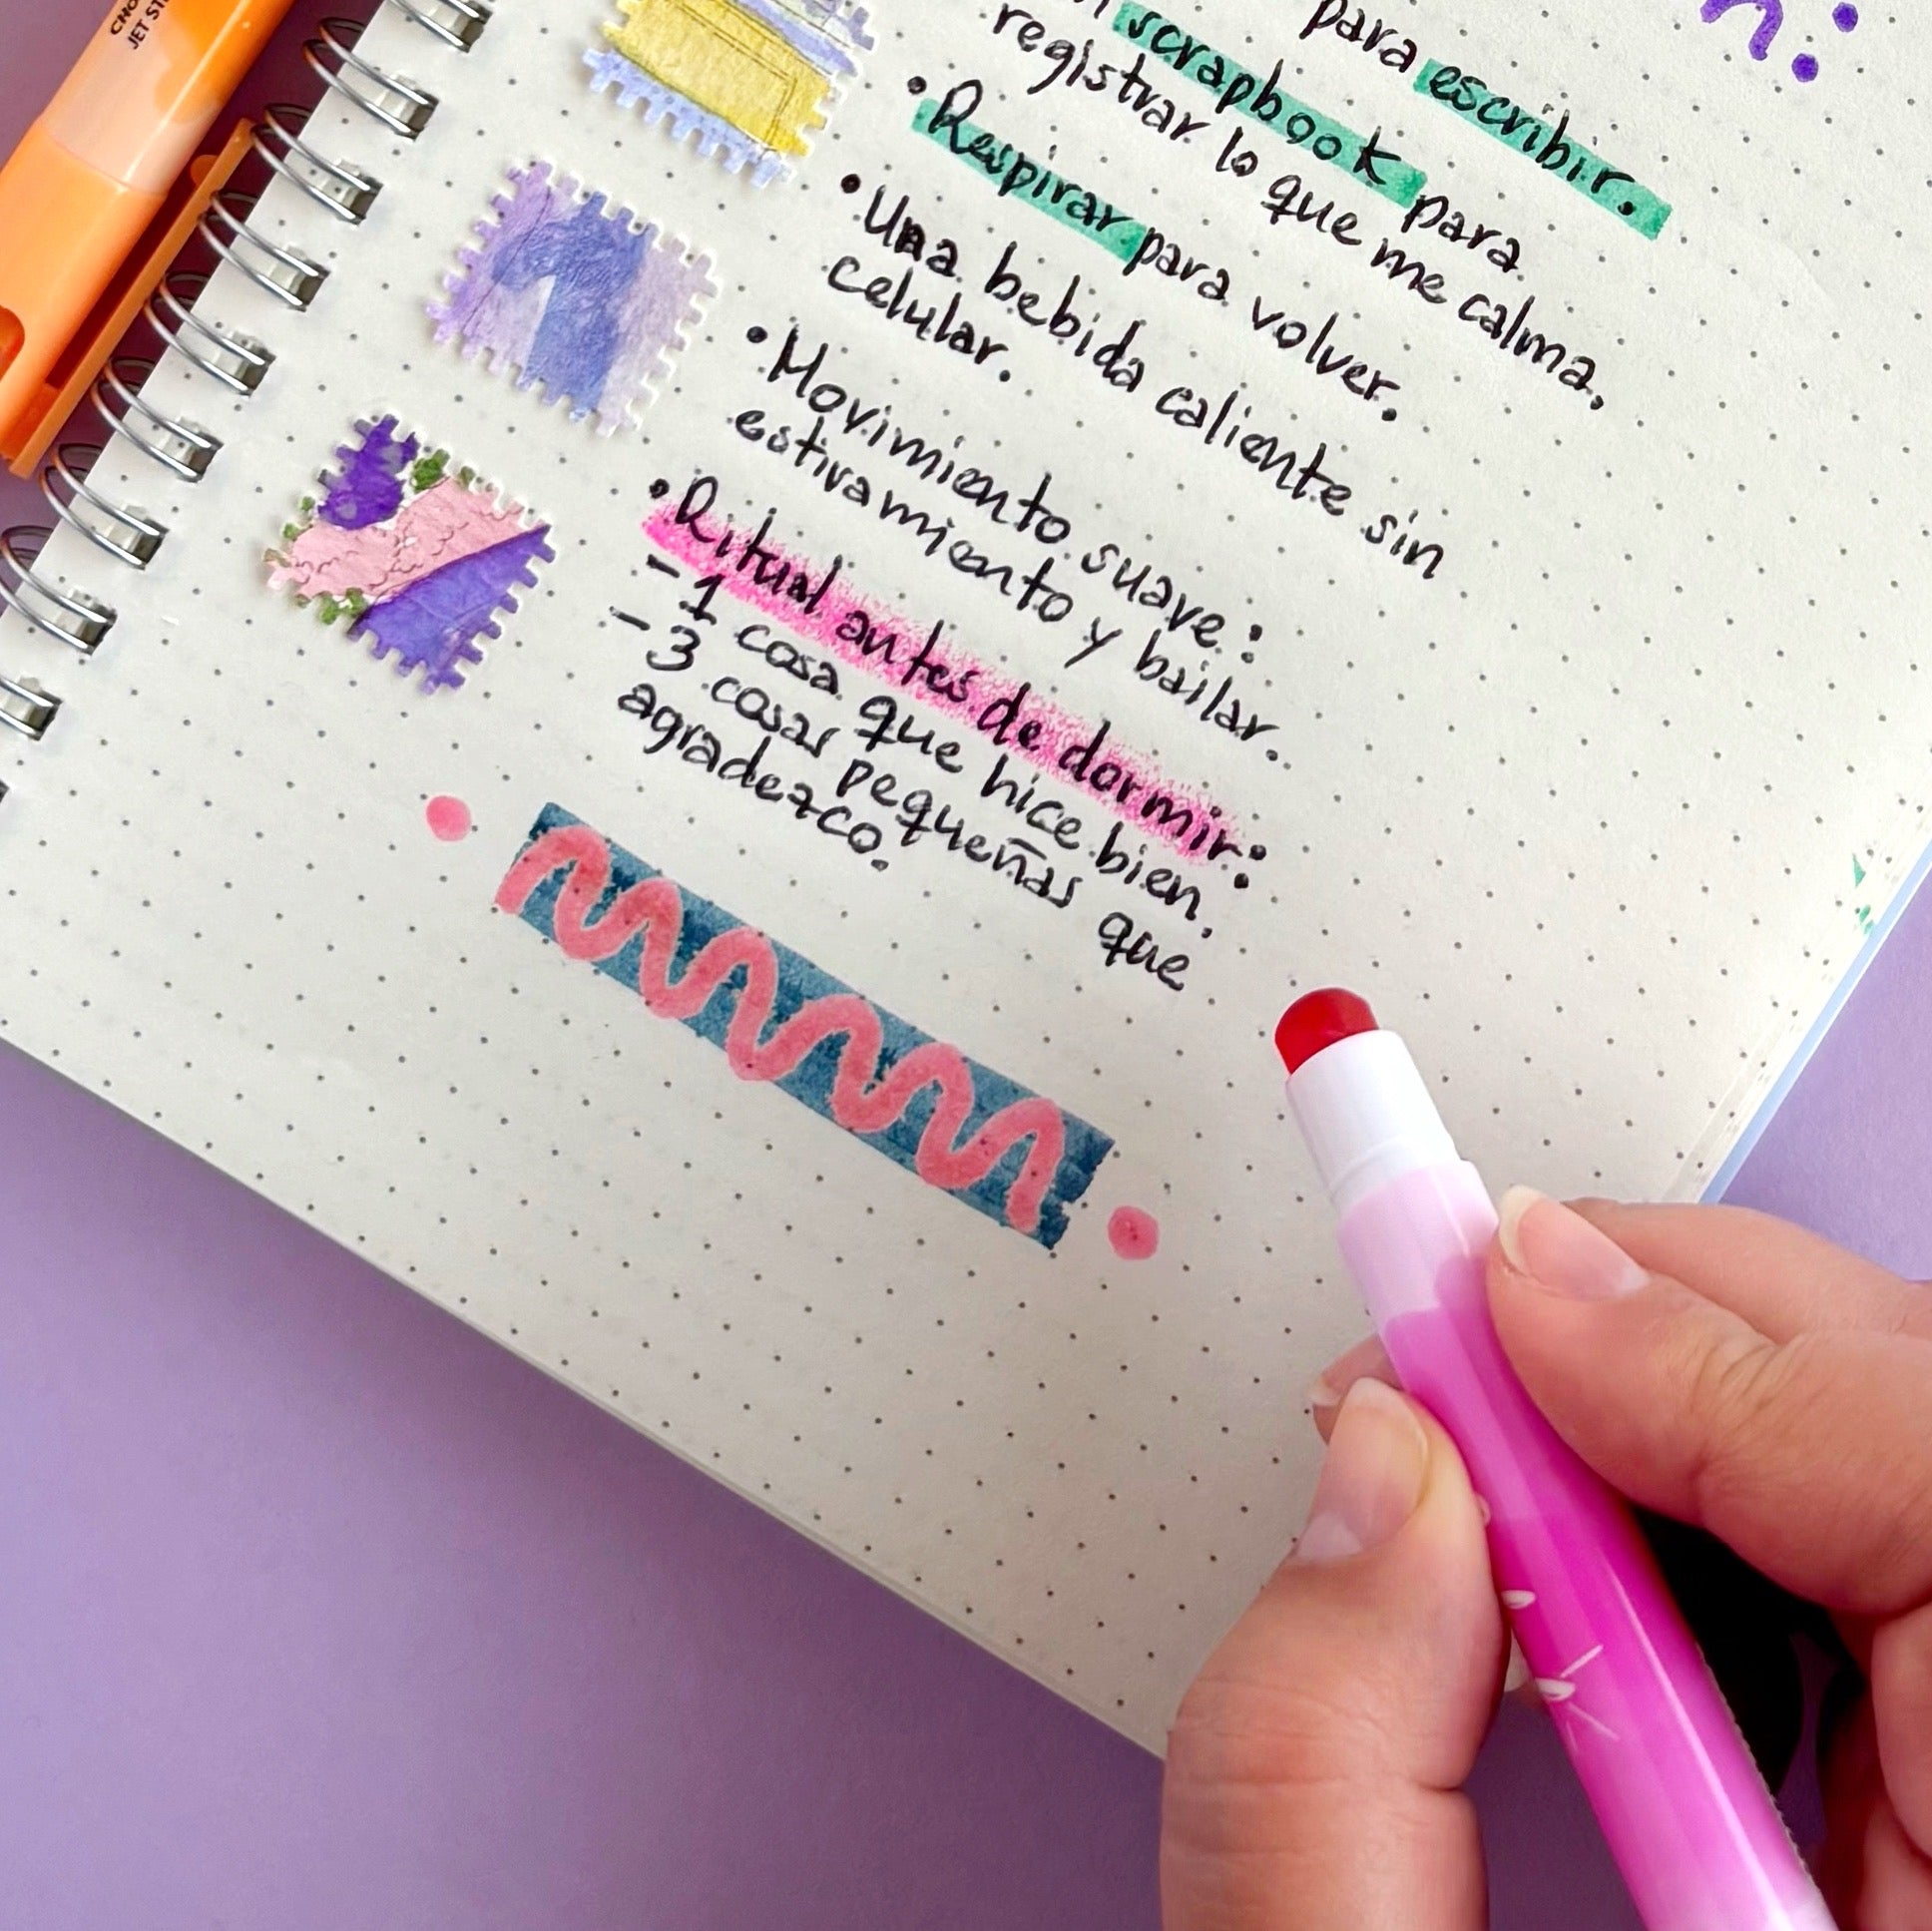 para escribir.
scrapbook para
registrar lo que me calma.
• Respirar para volver.
• Una bebida caliente sin
celular.
• Movimiento suave:
estiramiento y bailar.
• Ritual antes de dormir:
- 1 cosa que hice bien.
- 3 cosas pequeñas que
agradezco.
JET